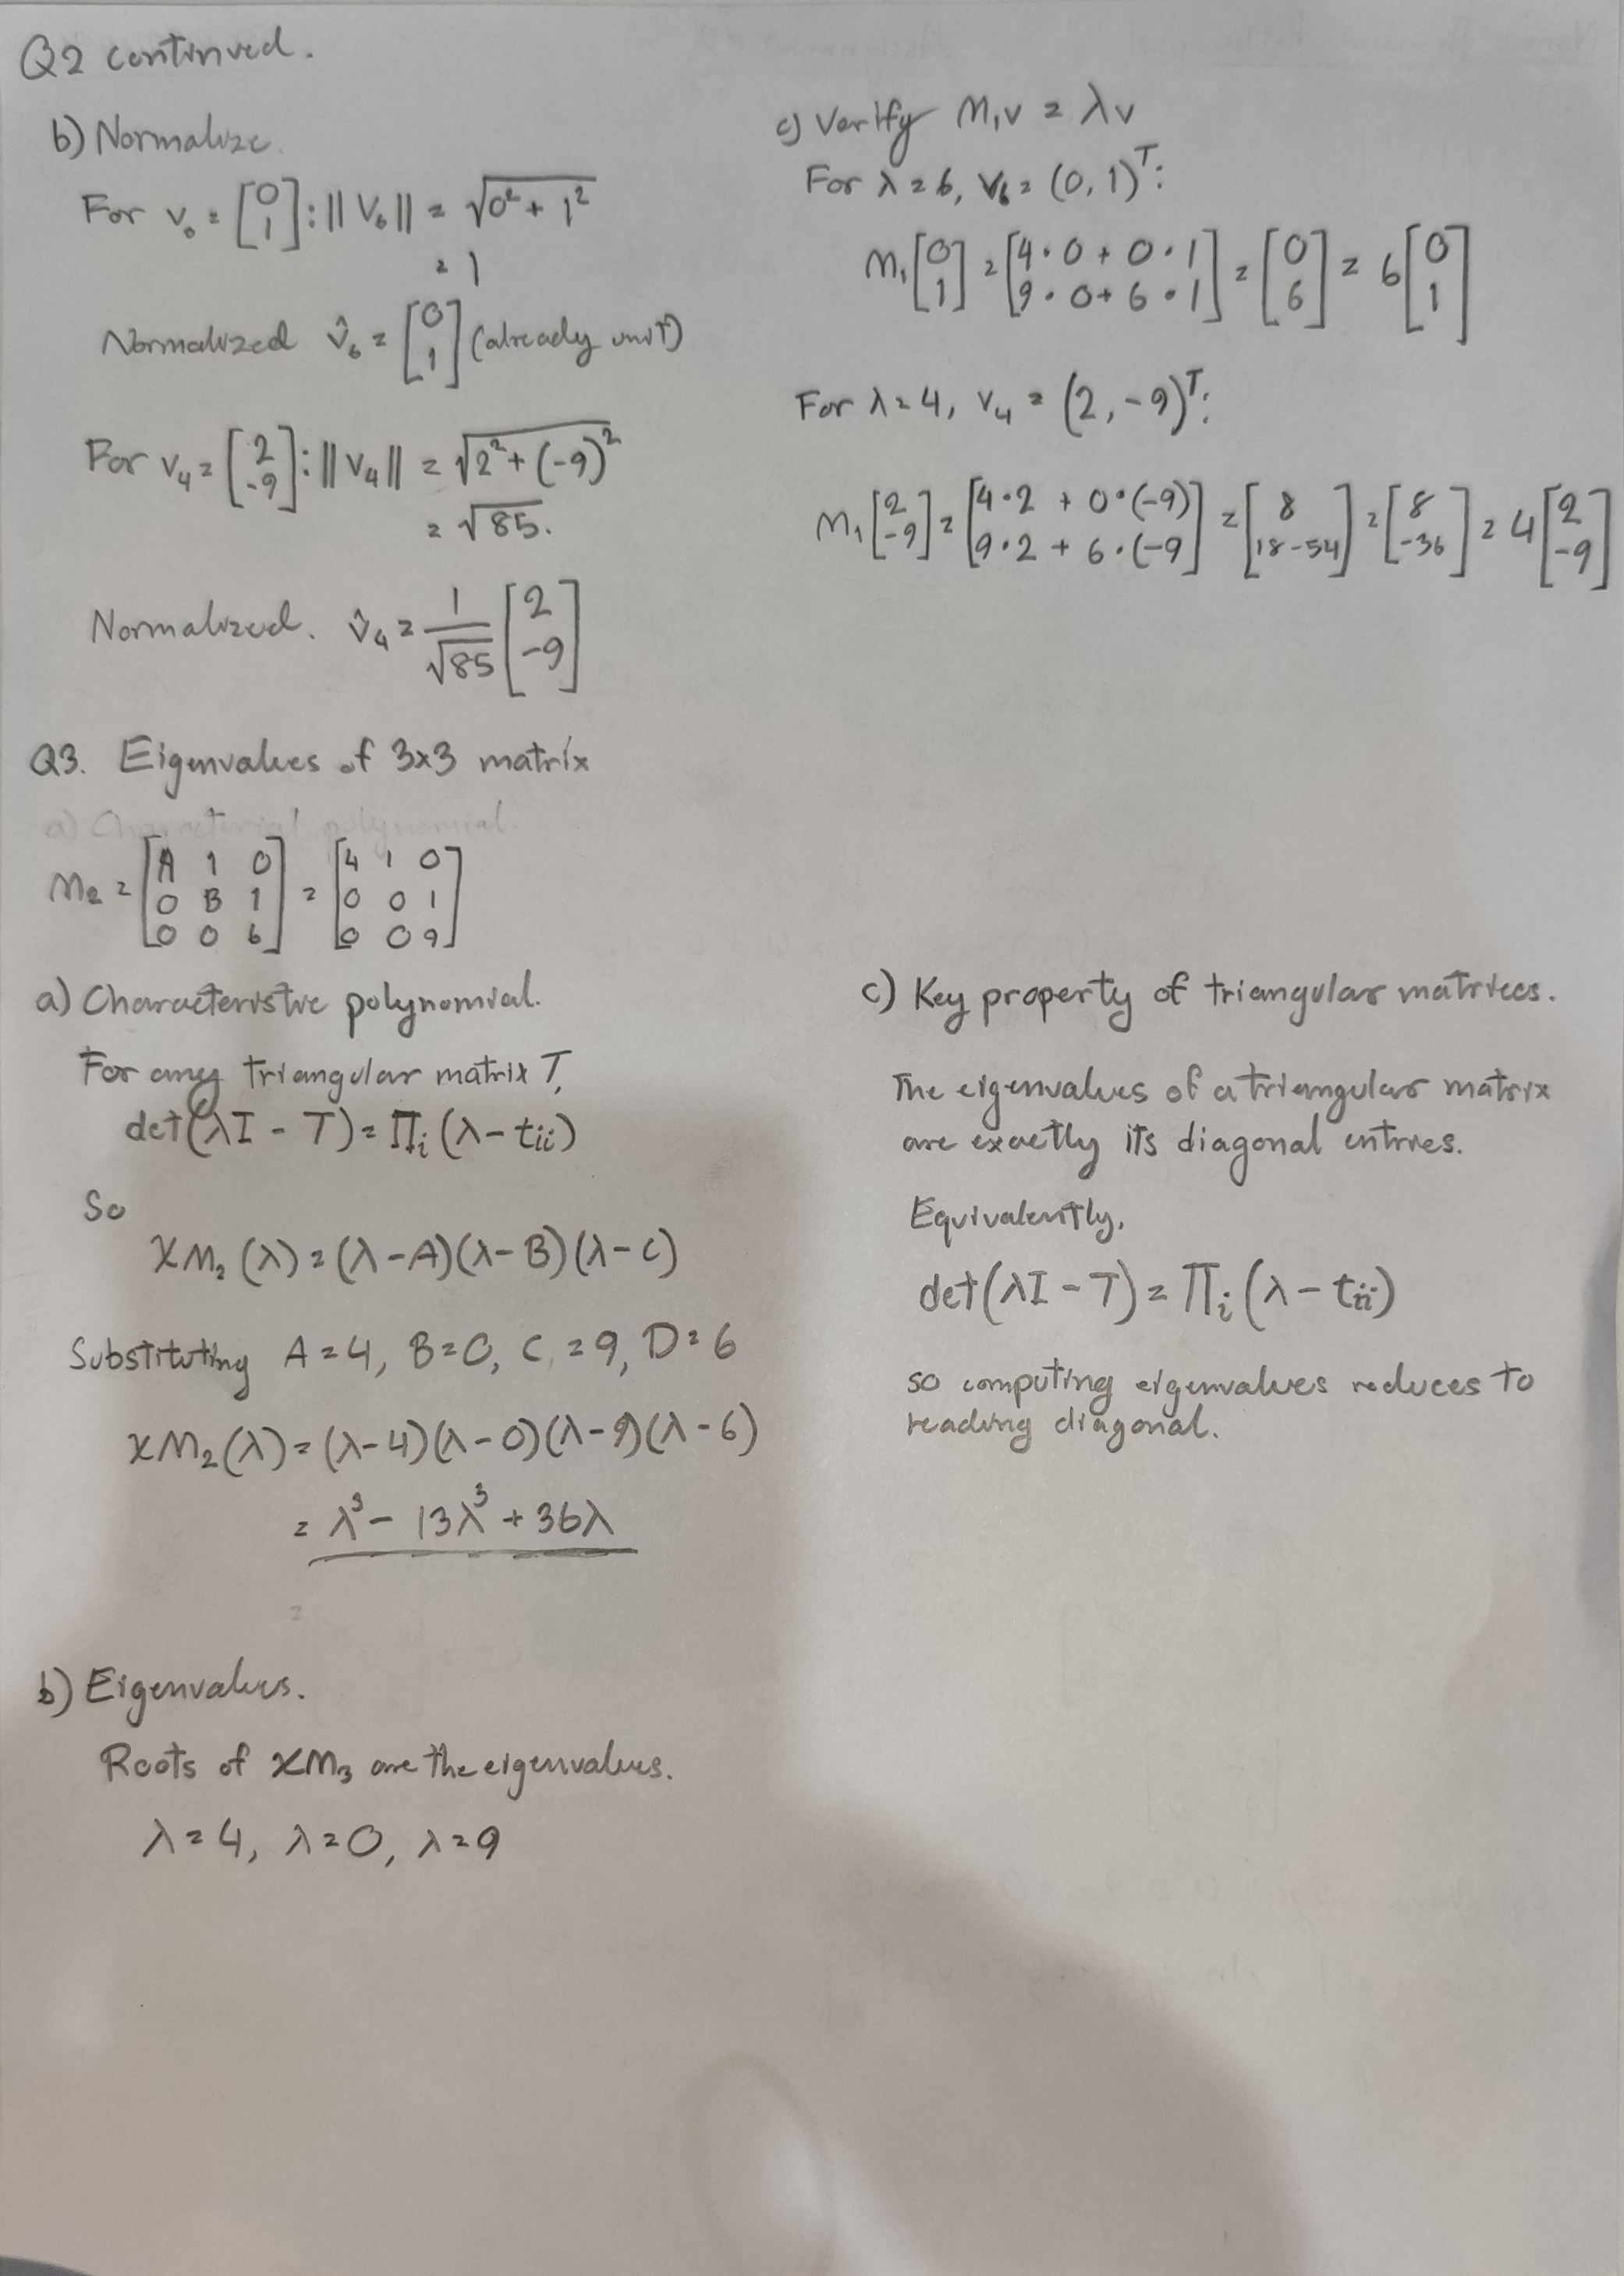 Q2 continued.
b) Normalize.
For v₀ = [0; 1] : ||V₆|| = √(0² + 1²)
= 1
Normalized v̂₆ = [0; 1] (already unit)
For v₄ = [2; -9] : ||V₄|| = √(2² + (-9)²)
= √85.
Normalized. v̂₄ = 1/√85 [2; -9]
c) Verify M₁v = λv
For λ = 6, V₆ = (0, 1)ᵀ:
M₁[0; 1] = [4·0 + 0·1; 9·0 + 6·1] = [0; 6] = 6[0; 1]
For λ = 4, v₄ = (2, -9)ᵀ:
M₁[2; -9] = [4·2 + 0·(-9); 9·2 + 6·(-9] = [8; 18-54] = [8; -36] = 4[2; -9]
Q3. Eigenvalues of 3x3 matrix
M₂ = [A 1 0; 0 B 1; 0 0 6] = [4 1 0; 0 0 1; 0 0 9]
a) Characteristic polynomial.
For any triangular matrix T,
det(λI - T) = Πᵢ (λ - tᵢᵢ)
So
XM₂ (λ) = (λ - A)(λ - B)(λ - C)
Substituting A = 4, B = 0, C = 9, D = 6
XM₂(λ) = (λ-4)(λ-0)(λ-9)(λ-6)
= λ³ - 13λ³ + 36λ
b) Eigenvalues.
Roots of XM₃ are the eigenvalues.
λ = 4, λ = 0, λ = 9
c) Key property of triangular matrices.
The eigenvalues of a triangular matrix
are exactly its diagonal entries.
Equivalently,
det(λI - T) = Πᵢ (λ - tᵢᵢ)
so computing eigenvalues reduces to
reading diagonal.